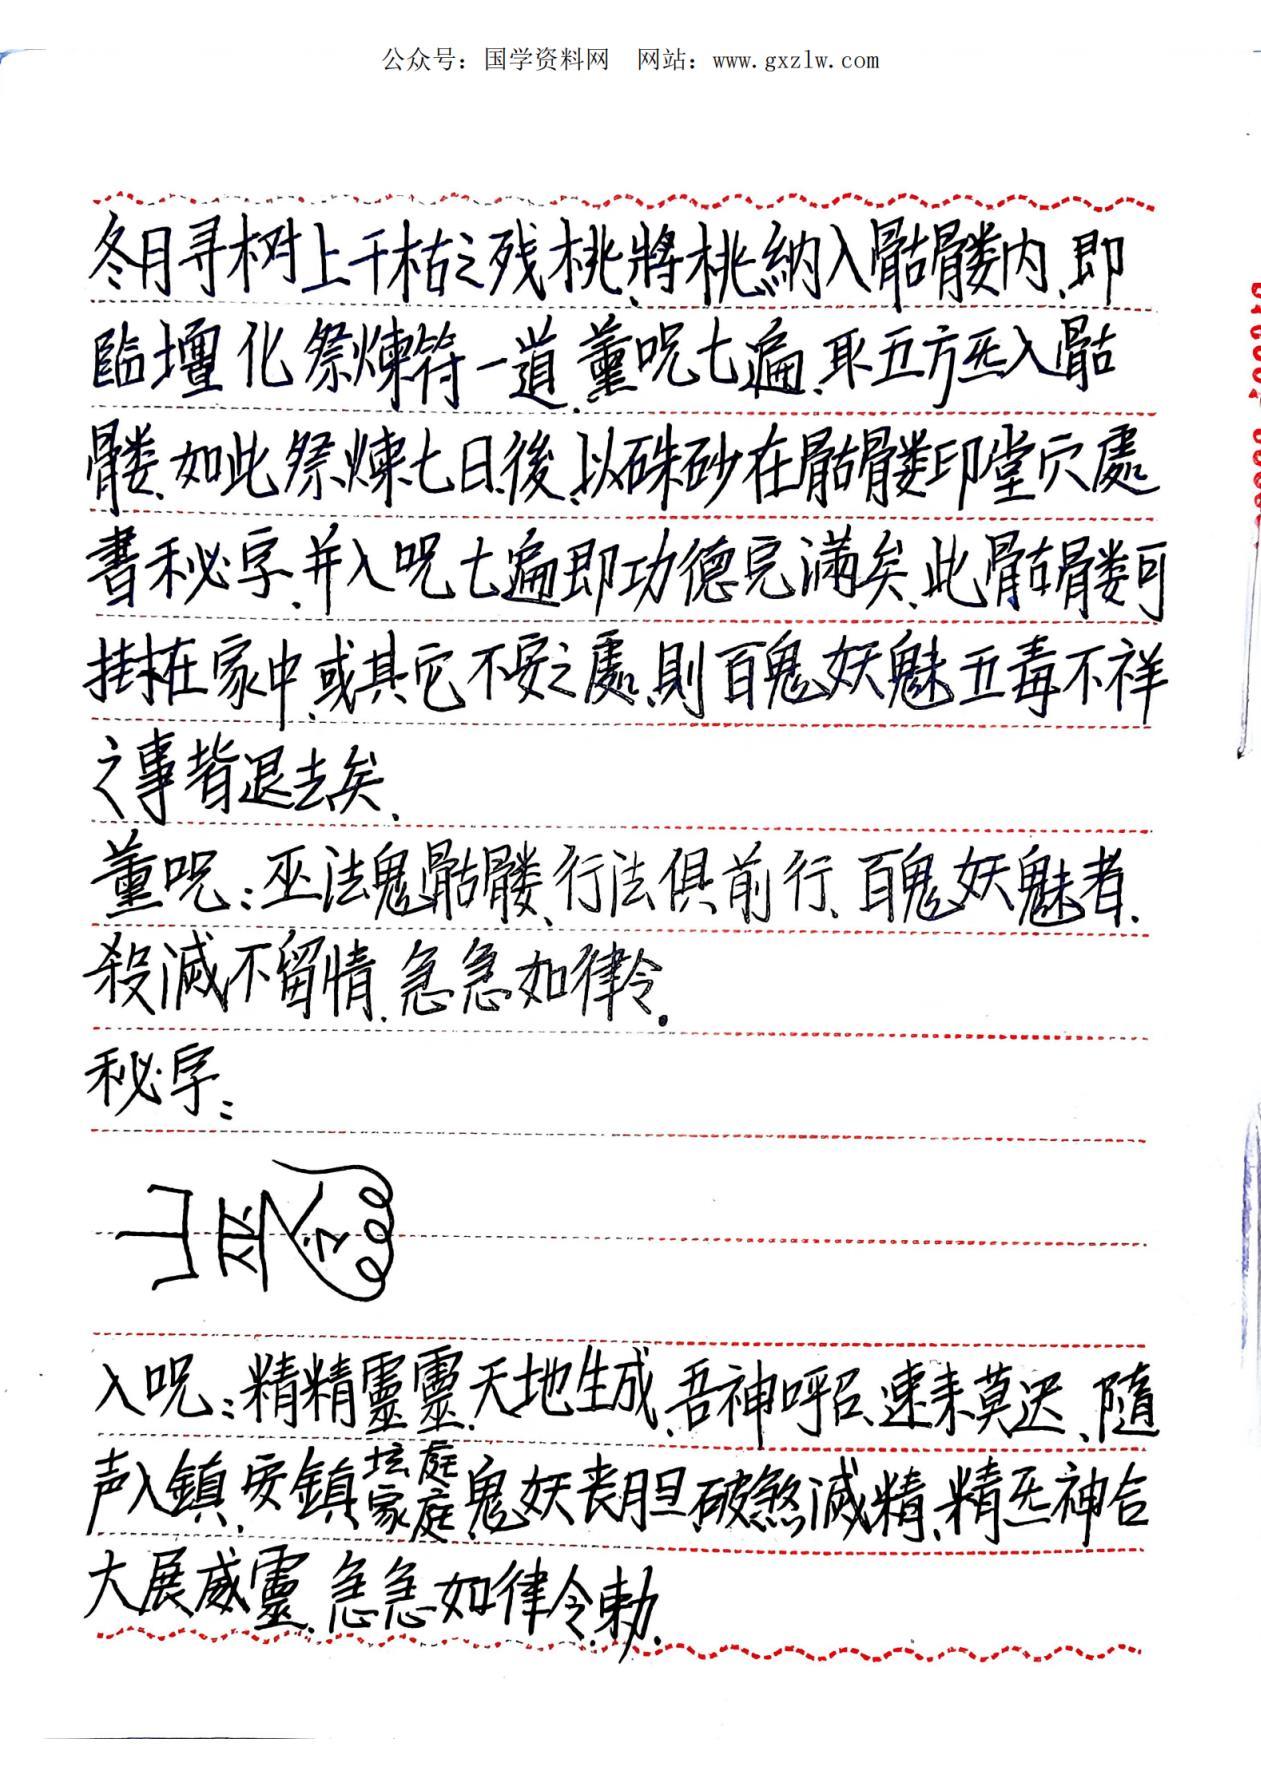 公众号：国学资料网　网站：www.gxzlw.com
冬月寻树上干枯之残桃、將桃納入骷髅内、即
臨壇化祭煉符一道、董呪七遍、取五方炁入骷
髅、如此祭煉七日後、以硃砂在骷髅印堂穴處
書秘字、并入呪七遍即功德完滿矣、此骷髅可
挂在家中、或其它不安之處、則百鬼妖魅五毒不祥
之事皆退去矣、
董呪：巫法鬼骷髅、行法俱前行、百鬼妖魅者、
殺滅不留情、急急如律令。
秘字：
入呪：精精靈靈、天地生成、吾神呼召、速来莫迟、隨
声入鎮、安鎮坛庭家庭、鬼妖丧胆、破煞滅精、精炁神合
大展威靈、急急如律令、勅、